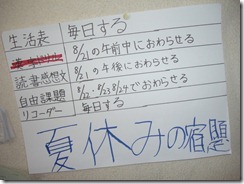 生活表 毎日する
8/21の午前中におわらせる
読書感想文 8/21の午後におわらせる
自由課題 8/22・8/23 8/24でおわらせる
リコーダー 毎日する
夏休みの宿題